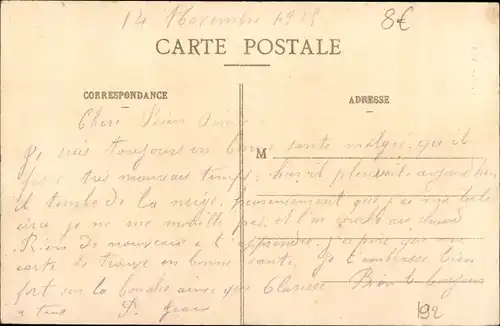 14 Novembre 1915
8€
CARTE POSTALE
CORRESPONDANCE
ADRESSE
Chère
Je suis toujours en bonne santé malgré qu'il
M
fait très mauvais temps, hier il pleuvait aujourd'hui
il tombe de la neige, heureusement que j'ai ma toile
cirée je ne me mouille pas, et l'on couche au chaud
Rien de nouveau a t apprendre. j'espère que ma
carte te trouve en bonne santé, Je t'embrasse bien
fort sur la bouche ainsi que Clarisse Bien le bonjour
a tous
192